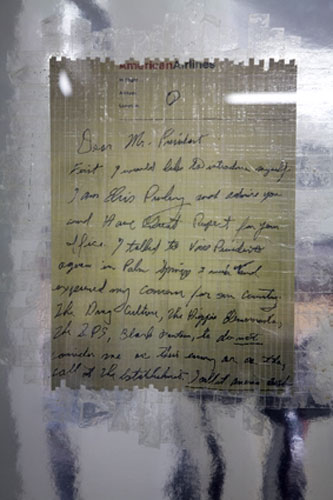 AmericanAirlines
In Flight
Altitude;
Location;
Dear Mr. President
First I would like to introduce myself
I am Elvis Presley and admire you
and Have Great Respect for your
office. I talked to Vice President
Agnew in Palm Springs 3 weeks and
expressed my concern for our country.
The Drug Culture, The Hippie Elements,
The SDS, Black Panthers, etc do not
consider me as their enemy or as they
call it the establishment. I call it America and